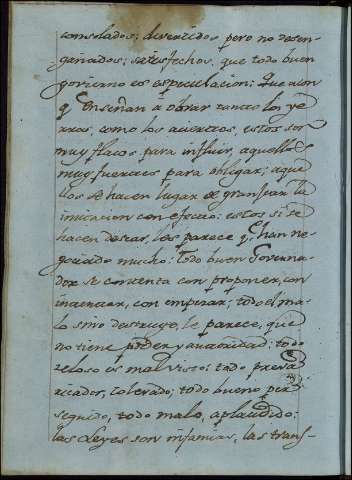 consolados; divertidos pero no desen-
gañados; satisfechos, que todo buen
govierno es especulacion; que aion
q.^e Enseñan à obrar tanto los ye-
rros, como los aciertos, estos son
muy flacos para influir, aquellos
muy fuertes para obligar; aque-
llos se hacen lugar de grangear la
imitacion con efecto; estos si se
hacen desear, les parece q.^e han ne-
gociado mucho: todo buen Governa-
dor se contenta con proponer, con
intentar, con empezar; todo el ma-
lo sino destruye, le parece, que
no tiene poder y autoridad; todo
zeloso es mal visto; todo preva-
ricador, tolerado; todo bueno per-
seguido, todo malo, aplaudido;
las Leyes son infamias, las trans-